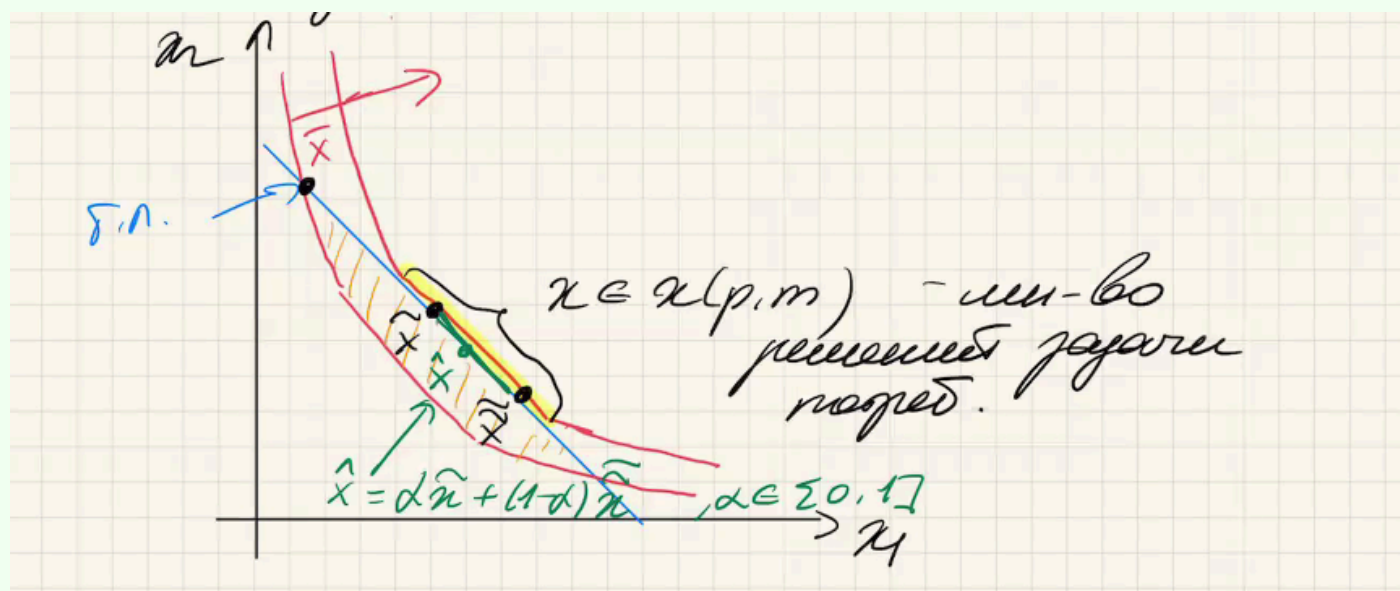 x₂
x̄
δ.л.
x ∈ x(p,m) - мн-во
решений задачи
потреб.
x̃
x̂
x̃̃
x̂ = αx̃ + (1-α)x̃̃, α ∈ [0,1]
x₁